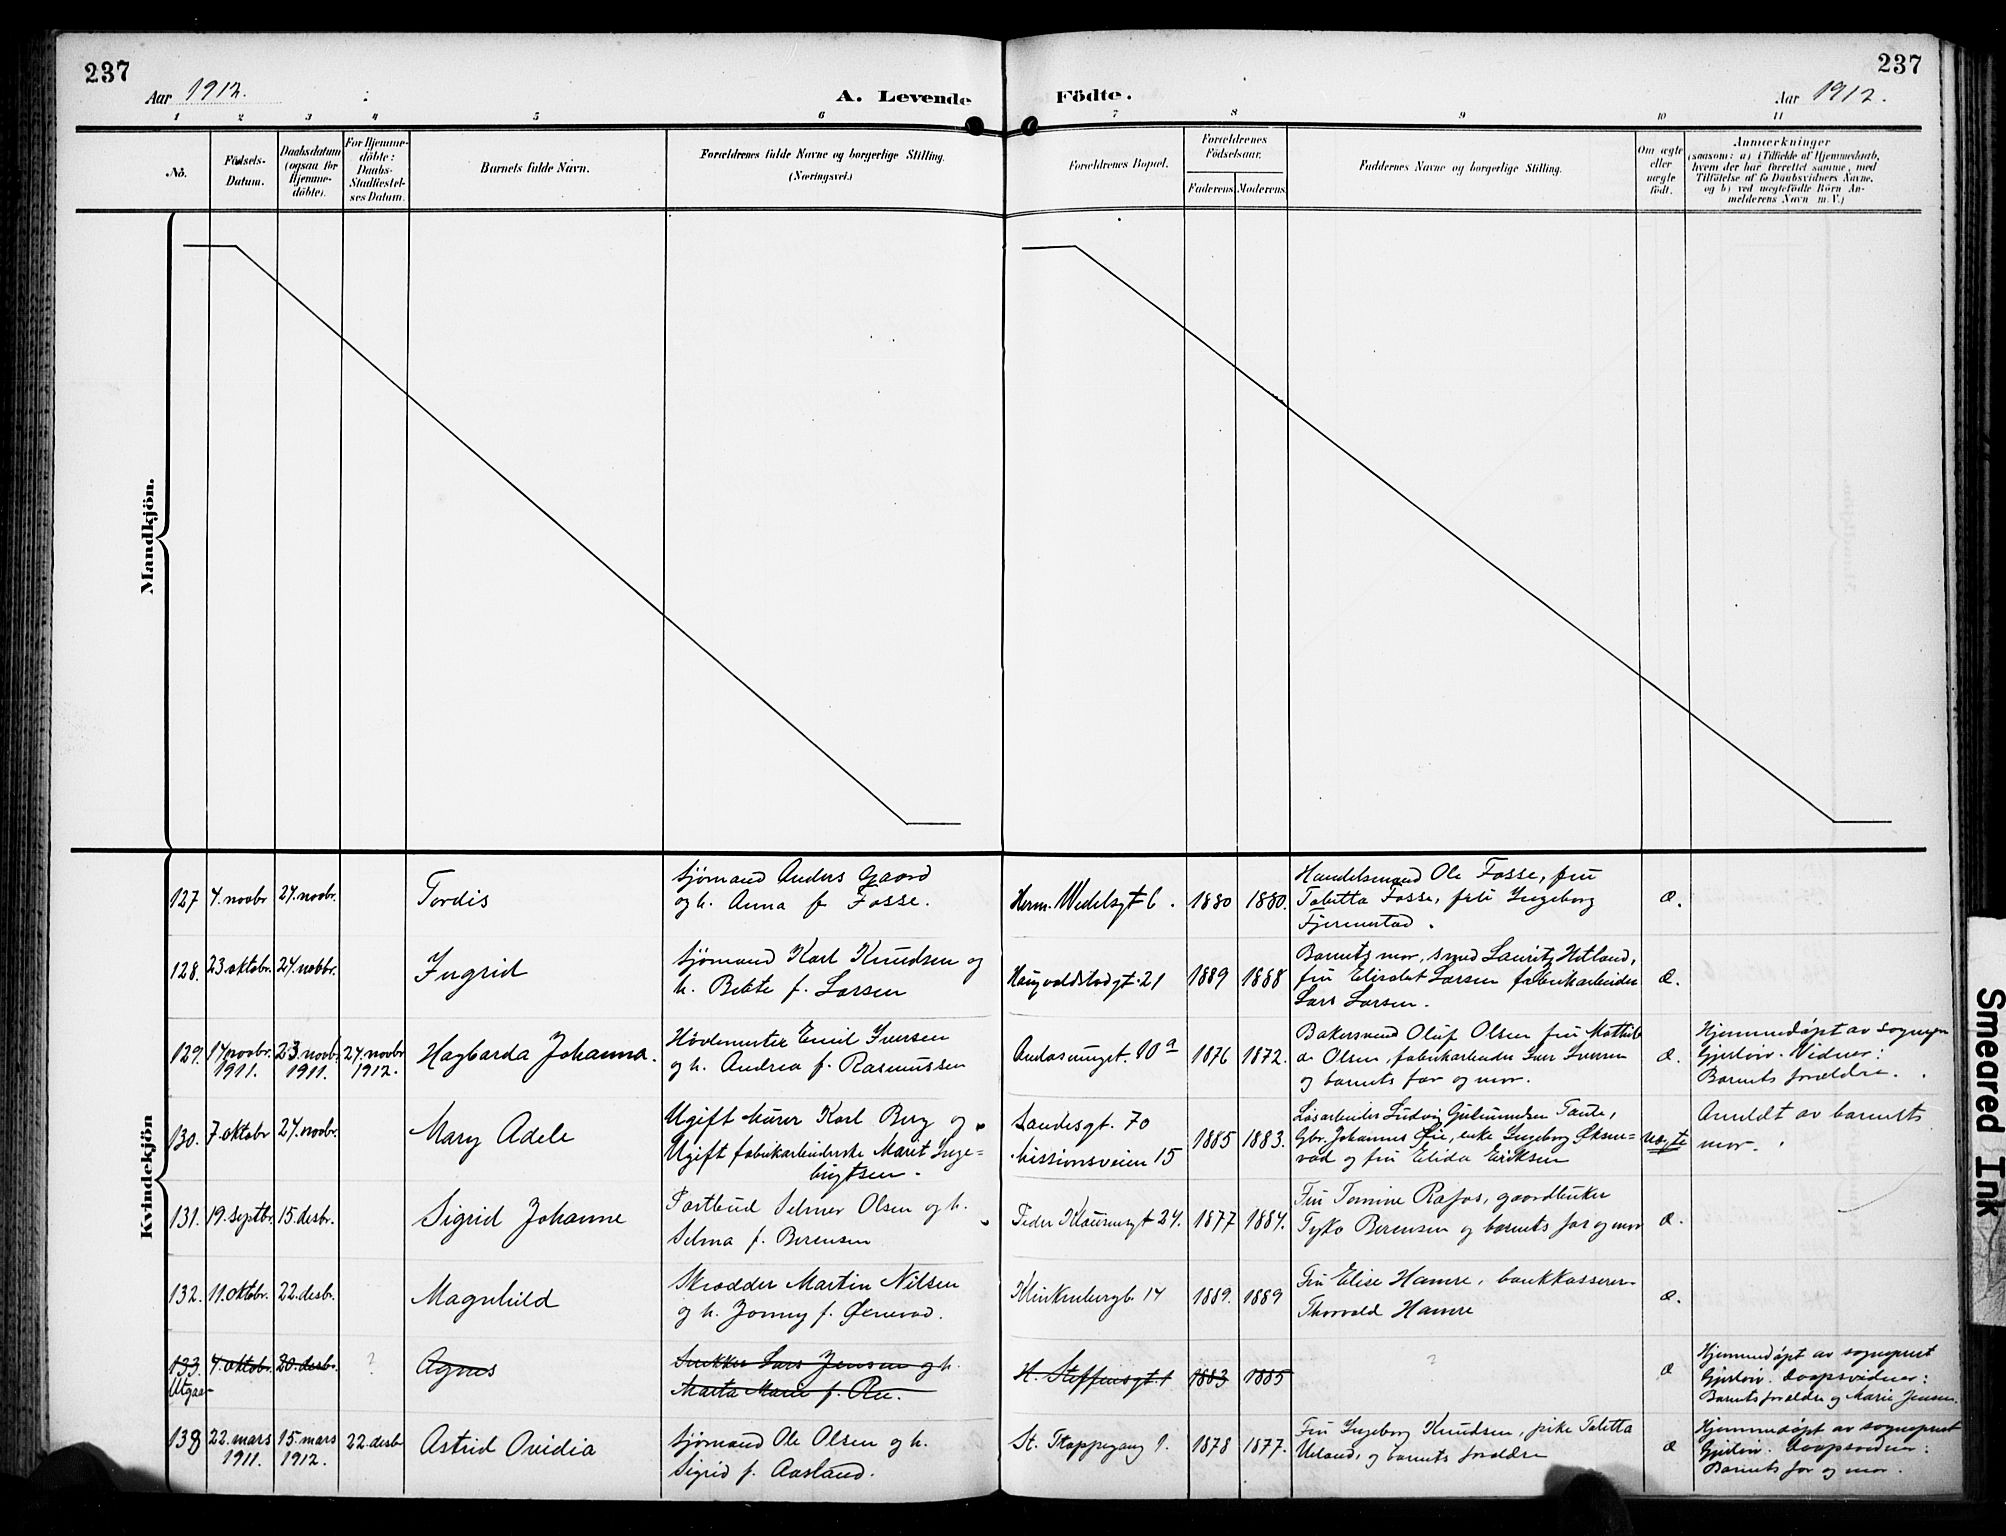 237
Aar 1912.
A. Levende Födte.
Aar 1912.
237
1 2 3 4 5 6 7 8 9 10 11
No.
Födsels-
Datum.
Daabsdatum
(ogsaa for
Hjemme-
döbte).
For Hjemme-
döbte:
Daabs-
Stadfæstel-
ses Datum.
Barnets fulde Navn.
Forældrenes fulde Navne og borgerlige Stilling.
(Næringsvei.)
Forældrenes Bopæl.
Forældrenes
Födselsaar.
Faderens Moderens
Faddernes Navne og borgerlige Stilling.
Om ægte
eller
uægte
födt.
Anmærkninger
(saasom: a) i Tilfælde af Hjemmedaab,
hvem der har forrettet samme, med
Tilföielse af to Daabsvidners Navne,
og b) ved uægtefödte Börn An-
melderens Navn m. V.)
Mandkjön.
Kvindekjön
127 4. novbr 24. novbr. Tordis
Sjømand Anders Gaard
og h. Anna f. Fosse.
Herm. Wedelsgt 6. 1880 1880.
Handelsmand Ole Fosse, fru
Tabitta Fosse, frk Ingeborg
Fjermestad.
Æ.
128. 23 oktobr. 24. novbr. Ingrid
Sjømand Karl Knudsen og
h. Berte f. Larsen
Haugvaldstadgt. 21 1889 1888
Barnets mor, smed Lauritz Hetland,
fru Elisabet Larsen fabrikarbeider
Lars Larsen.
Æ.
129. 14 novbr. 1911. 23. novbr. 1911. 24. novbr 1912. Hagbarda Johanna.
Hovlemester Emil Iversen
og h. Andrea f. Rasmussen
Andasmuget. 10a 1876 1872.
Bakersvend Oluf Olsen fru Mathil-
de Olsen, fabrikarbeider Iver Iversen
og barnets far og mor.
Æ.
Hjemmedøpt av sognepr
Gjerløw. Vidner:
Barnets forældre.
130. 7. oktobr 24. novbr. Mary Adele
Ugift Murer Karl Berg og
Ugift fabrikarbeiderske Marit Inge=
brigtsen.
Sandesgt. 70
Missionsveien 15
1885 1883.
Løsarbeider Ludvig Gudmundsen Taule,
Gbr. Johannes Øie, enke Ingeborg Øksne=
vad og fru Elida Eriksen
Uægte
Anmeldt av barnets
mor.
131. 19. septbr. 15. desbr. Sigrid Johanne
Postbud Selmer Olsen og h.
Selma f. Berensen
Peder Klausensgt 24. 1877 1884.
Fru Tomine Rafos, gaardbruker
Tyko Berensen og barnets far og mor
Æ.
132. 11. oktobr. 22. desbr. Magnhild
Skrædder Martin Nilsen
og h. Jonny f. Øxnevad.
Klinkenberggt. 14 1889. 1889
Fru Elise Hamre, bankkasserer
Thorvald Hamre
Æ.
133 4. oktob. 20. desbr. ? Agnes
Utgaar
Snekker Lars Jensen og h.
Marta Marie f. Ree.
H. Steffensgt. 1 1883 1885
?
Æ
Hjemmedøpt av sogneprest
Gjerløw. Daapsvidner:
Barnets forældre og Marie Jensen.
133 22. mars 1911. 15. mars 1912. 22. desbr Astrid Ovidia
Sjømand Ole Olsen og h.
Sigrid f. Aasland.
St. Trappegang 9. 1878 1877.
Fru Ingeborg Knudsen, pike Talitta
Ueland, og barnets forældre
Æ
Hjemmedøpt av sogneprest
Gjerløw. Daapsvidner:
Barnets far og mor.
Smeared Ink